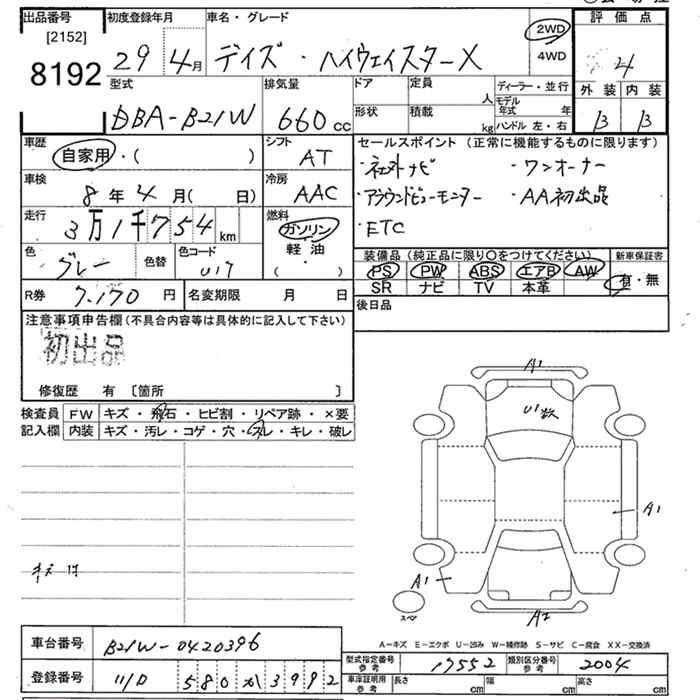 出品番号 初度登録年月 車名・グレード 評価点
[2152]
8192
29 4月 デイズ・ハイウェイスターX 2WD 4WD 4
型式 排気量 ドア 定員 人 ディーラー・並行 外装 内装
DBA-B21W 660cc 形状 積載 kg モデル年式 年 ハンドル 左・右 B B
車歴 シフト セールスポイント (正常に機能するものに限ります)
自家用・( ) AT ・社外ナビ ・ワンオーナー
車検 冷房 ・アラウンドビューモニター ・AA初出品
8年4月( 日) AAC ・ETC
走行 燃料
3万1千754km ガソリン
軽油
色 色替 色コード ( ・ )
グレー U17
装備品 (純正品に限り○をつけてください) 新車保証書
PS PW ABS エアB AW 有・無
SR ナビ TV 本革
R券 7.170円 名変期限 月 日 後日品
注意事項申告欄 (不具合内容等は具体的に記入して下さい)
初出品
修復歴 有 〔箇所 〕
検査員 FW キズ・飛石・ヒビ割・リペア跡・×要
記入欄 内装 キズ・汚レ・コゲ・穴・スレ・キレ・破レ
A1
U1数
A1
A1
スペア
A2
A-キズ E-エクボ U-凹み W-補修跡 S-サビ C-腐食 XX-交換済
車台番号 B21W-0420396
型式指定番号 参考 17552 類別区分番号 参考 2004
登録番号 580か3992
車庫証明用 参考 長さ cm 幅 cm 高さ cm